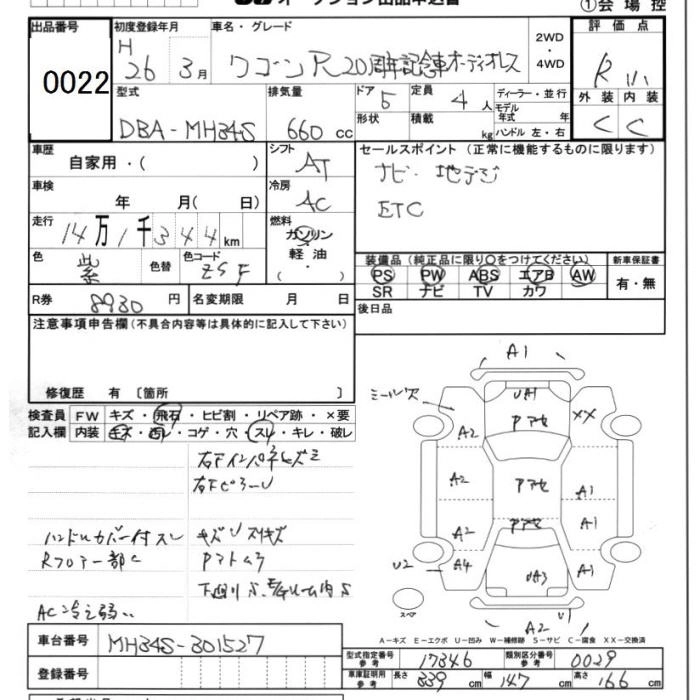 ①会場控
出品番号 0022
初度登録年月 H 26 3月
車名・グレード ワゴンR20周年記念車オーディオレス
2WD ・ 4WD
評価点 R
外装 C 内装 C
型式 DBA-MH34S
排気量 660 cc
ドア 5
形状
定員 4 人
積載 kg
ディーラー・並行
モデル年式 年
ハンドル 左・右
車歴 自家用・( )
シフト AT
セールスポイント (正常に機能するものに限ります)
ナビ・地デジ
ETC
車検 年 月( 日)
冷房 AC
走行 14万1千344km
燃料 ガソリン 軽油 ( ・ )
色 紫 色替 色コード ZSF
装備品 (純正品に限り○をつけてください)
PS PW ABS エアB AW
SR ナビ TV カワ
新車保証書 有・無
R券 8930 円 名変期限 月 日
後日品
注意事項申告欄(不具合内容等は具体的に記入して下さい)
修復歴 有 〔箇所 〕
検査員記入欄
FW キズ・飛石・ヒビ割・リペア跡・×要
内装 キズ・汚レ・コゲ・穴・スレ・キレ・破レ
右Fインパネヒズミ
右FピラーU
ハンドルカバー付スレ
キズUスリキズ
Rフロアー部C
Pマトムラ
AC冷え弱い
A1
ミール欠
UA1
Pアセ
XX
A2
A2
Pアセ
A1
A2
Pアセ
A1
U2
A4
UA3
A1
スペア
A2
U1
A−キズ E−エクボ U−凹み W−補修跡 S−サビ C−腐食 XX−交換済
車台番号 MH34S-301527
登録番号
型式指定番号 参考 17346
類別区分番号 参考 0029
車庫証明用 参考 長さ 339 cm 幅 147 cm 高さ 166 cm